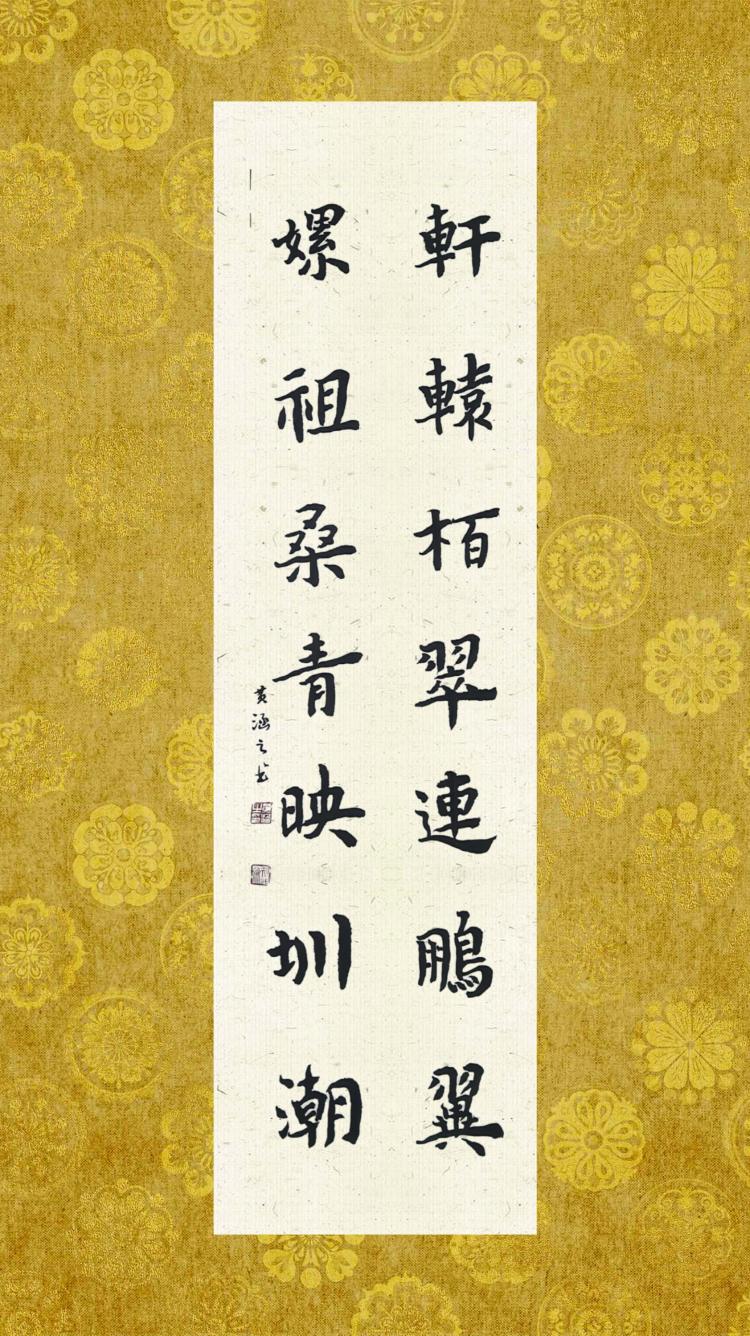 軒轅栢翠連鵬翼
嫘祖桑青映圳潮
黄涵之书